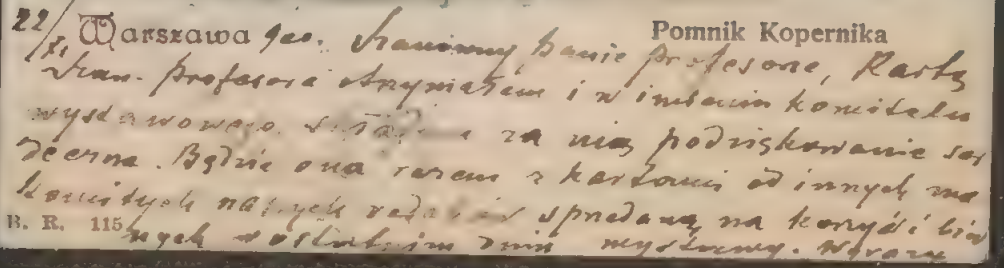 22/ Warszawa 900. Szanowny Panie Profesorze, Kartę Pomnik Kopernika
Szan. Profesora otrzymałem i w imieniu komitetu
wystawowego składam za nią podziękowanie ser
deczne. Będzie ona razem z kartami od innych zna
komitych naszych rodaków sprzedaną na korzyść bied
B. R. 115
nych w ostatnim dniu wystawy. Wyrazy